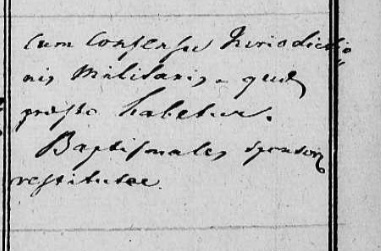 Cum Consensu Jurisdictio
nis Militaris, que
præsto habetur.
Baptismales sponsor
restitutae.